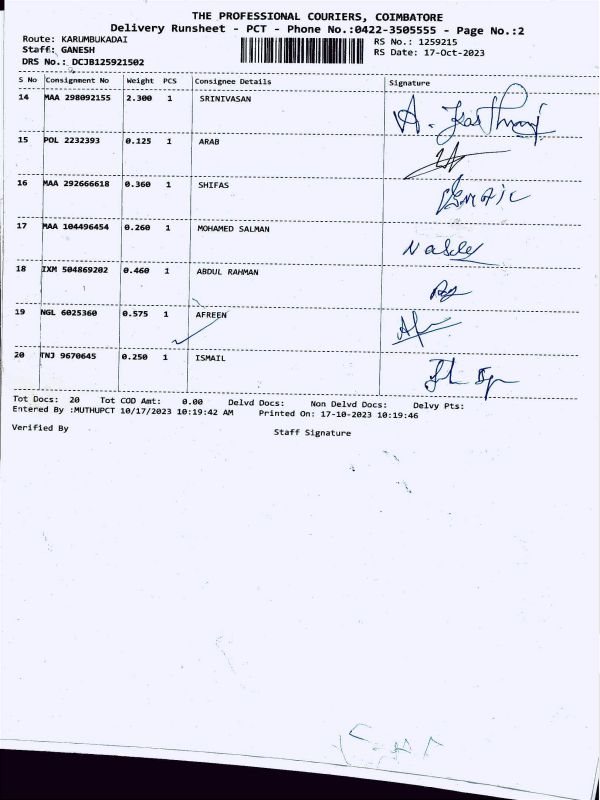 THE PROFESSIONAL COURIERS, COIMBATORE
Delivery Runsheet - PCT - Phone No.:0422-3505555 - Page No.:2
Route: KARUMBUKADAI RS No.: 1259215
Staff: GANESH RS Date: 17-Oct-2023
DRS No.: DCJB125921502
S No Consignment No Weight PCS Consignee Details Signature
14 MAA 298092155 2.300 1 SRINIVASAN
15 POL 2232393 0.125 1 ARAB
16 MAA 292666618 0.360 1 SHIFAS
17 MAA 104496454 0.260 1 MOHAMED SALMAN
18 IXM 504869202 0.460 1 ABDUL RAHMAN
19 NGL 6025360 0.575 1 AFREEN
20 TNJ 9670645 0.250 1 ISMAIL
Tot Docs: 20 Tot COD Amt: 0.00 Delvd Docs: Non Delvd Docs: Delvy Pts:
Entered By :MUTHUPCT 10/17/2023 10:19:42 AM Printed On: 17-10-2023 10:19:46
Verified By Staff Signature